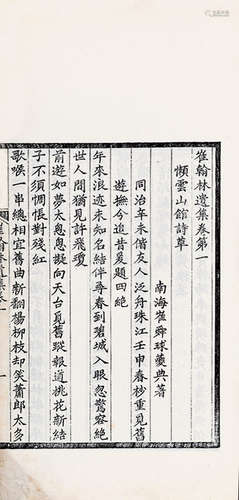 崔翰林遺集卷第一
懶雲山館詩草
南海崔舜球夔典著
同治辛未偕友人泛舟珠江壬申春杪重見舊
遊撫今追昔爰題四絶
年來浪迹未知名結伴尋春到碧城入眼忽驚容絶
世人間猶見許飛瓊
前遊如夢太怱怱擬向天台覓舊蹤報道桃花新結
子不須惆悵對殘紅
歌喉一串總相宜舊曲新翻楊柳枝却笑蕭郎太多
崔翰林遺集卷一